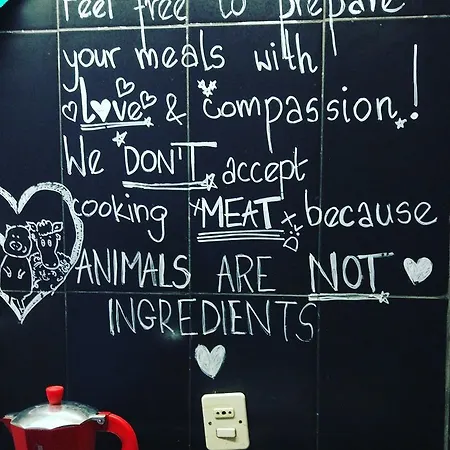 Feel free to prepare
your meals with
love & compassion!
We DON'T accept
cooking MEAT because
ANIMALS ARE NOT
INGREDIENTS